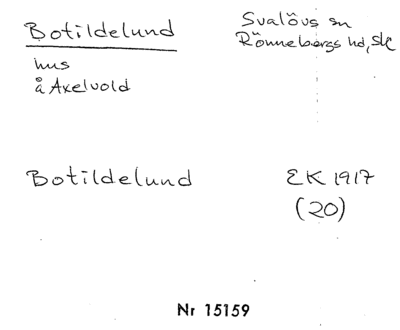 Botildelund
Svalövs sn
Rönnebergs hd, Sk
hus
å Axelvold
Botildelund
EK 1917
(20)
Nr 15159